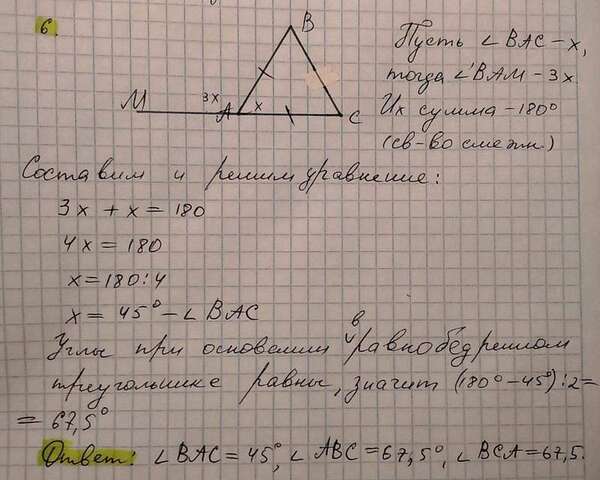 6.
B
M
3x
A
x
C
Пусть ∠ BAC - x,
тогда ∠ BAM - 3x.
Их сумма - 180°
(св-во смежн.)
Составим и решим уравнение:
3x + x = 180
4x = 180
x = 180 : 4
x = 45° - ∠ BAC
Углы при основании в равнобедренном
треугольнике равны, значит (180° - 45°) : 2 =
= 67,5°
Ответ: ∠ BAC = 45°, ∠ ABC = 67,5°, ∠ BCA = 67,5.